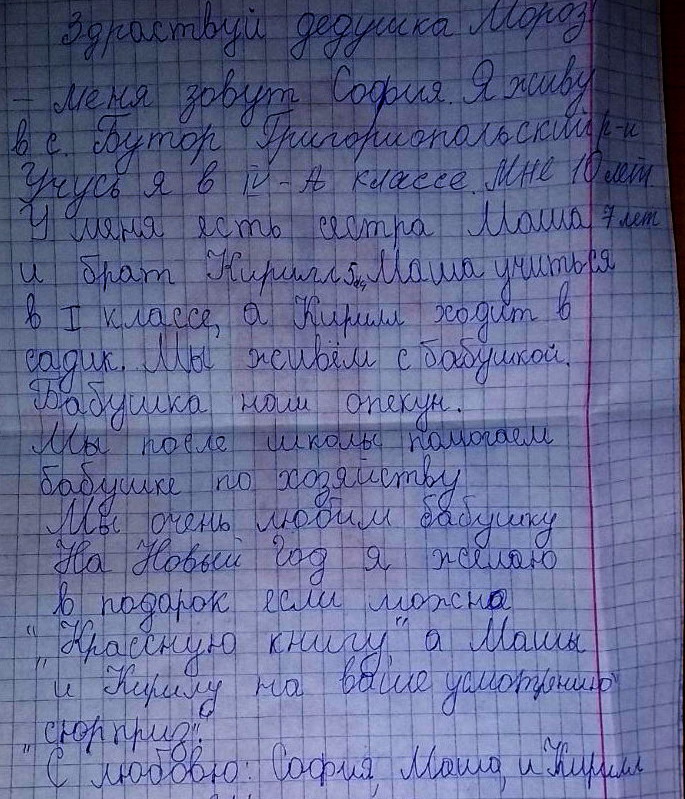 Здраствуй дедушка Мороз
- меня зовут София. Я живу
в с. Бутор Григориопольский р-н
Учусь я в IV-А классе. Мне 10 лет
У меня есть сестра Маша 7 лет
и брат Кирилл 5 Маша учиться
в I классе, а Кирилл ходит в
садик. Мы живём с бабушкой.
Бабушка наш опекун.
Мы после школы помогаем
бабушке по хозяйству
Мы очень любим бабушку
На Новый Год я желаю
в подарок если можно
„Красную книгу" а Машы
и Кирилу на ваше усмотрению
„сюрприз".
С любовю: София, Маша, и Кирилл